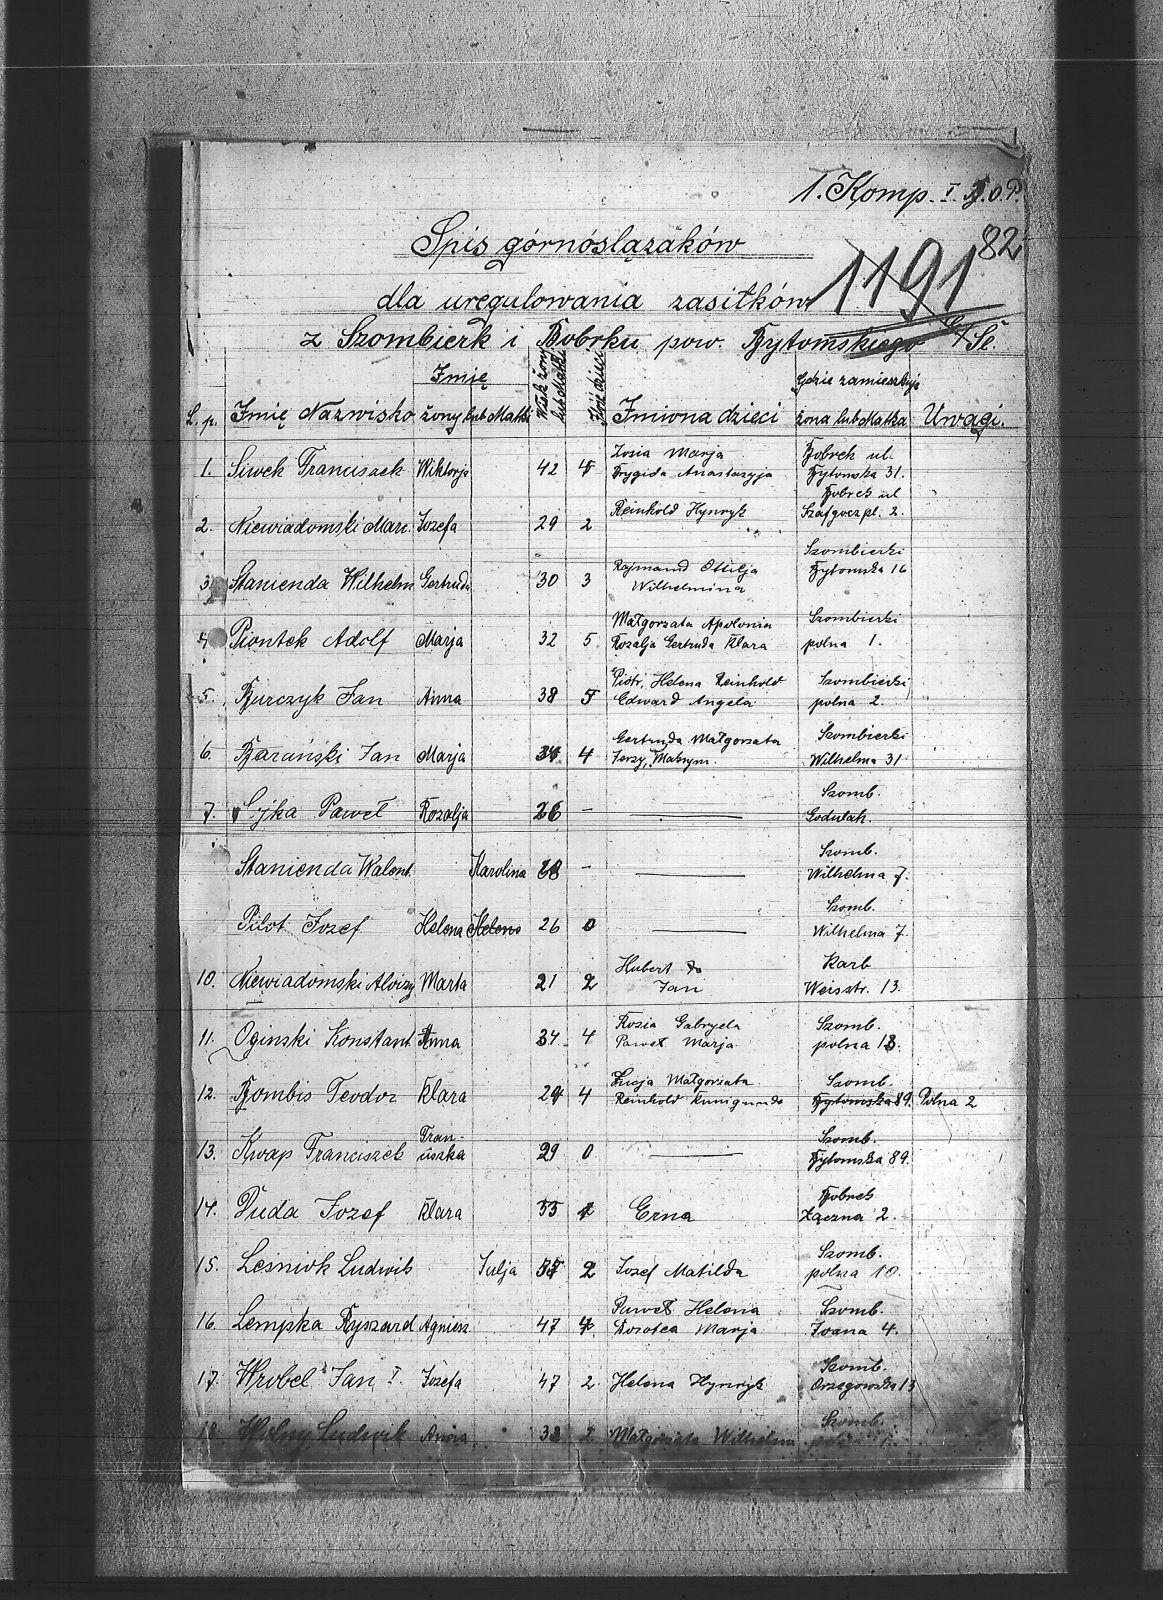 1. Komp. I. B.O.P.
82
1191
Spis górnóslązaków
dla uregulowania zasiłków
z Szombierk i Bobrku pow. Bytomskiego G/Śl.
L.p. Imię Nazwisko Imię żony lub Matki Wiek żony lub Matki Ilość dzieci Imiona dzieci Gdzie zamieszkuje żona lub Matka Uwagi.
1. Siwek Franciszek Wiktorja 42 4 Zosia Marja Brygida Anastazyja Bobrek ul. Bytomska 31.
2. Niewiadomski Mari. Jozefa 29 2 Reinhold Hynryk Bobrek ul Szafgoczpl. 2.
3. Stanienda Wilhelm Gertruda 30 3 Rajmund Otilja Wilhelmina Szombierki Bytomska 16
4. Piontek Adolf Marja 32 5 Małgorzata Apolonia Rozalja Gertruda Klara Szombierki polna 1.
5. Burczyk Jan Anna 38 5 Piotr, Helena Reinhold Edward Angela Szombierki polna 2.
6. Barański Jan Marja 34 4 Gertruda Małgorzata Jerzy, Maksym. Szombierki Wilhelma 31
7. Sijka Paweł Rozalja 26 — Szomb. Godulah.
Stanienda Walent. Karolina 28 — Szomb. Wilhelma 7.
Pilot Jozef Helena Helena 26 0 — Szomb. Wilhelma 7.
10. Niewiadomski Aloizy Marta 21 2 Hubert Jan Karb Weisstr. 13.
11. Oginski Konstant. Anna 34 4 Rozia Gabryela Paweł Marja Szomb. polna 13.
12. Bombis Teodor Klara 29 4 Łucja Małgorzata Reinhold Kunigunda Szomb. Bytomska 89. Polna 2
13. Kwap Franciszek Franciszka 29 0 — Szomb. Bytomska 89.
14. Duda Jozef Klara 55 1 Erna Bobrek Łączna 2.
15. Lesniok Ludwik Julja 57 2 Jozef Matilda Szomb. polna 10.
16. Lempka Ryszard Agniesz. 47 4 Paweł Helena Dorotea Marja Szomb. Ivana 4.
17. Wrobel Jan I. Józefa 47 2 Helena Hynryk Szomb. Orzegowska 13
18. Wolny Ludwik Anna 38 2 Małgorzata Wilhelm Szomb. polna 1.